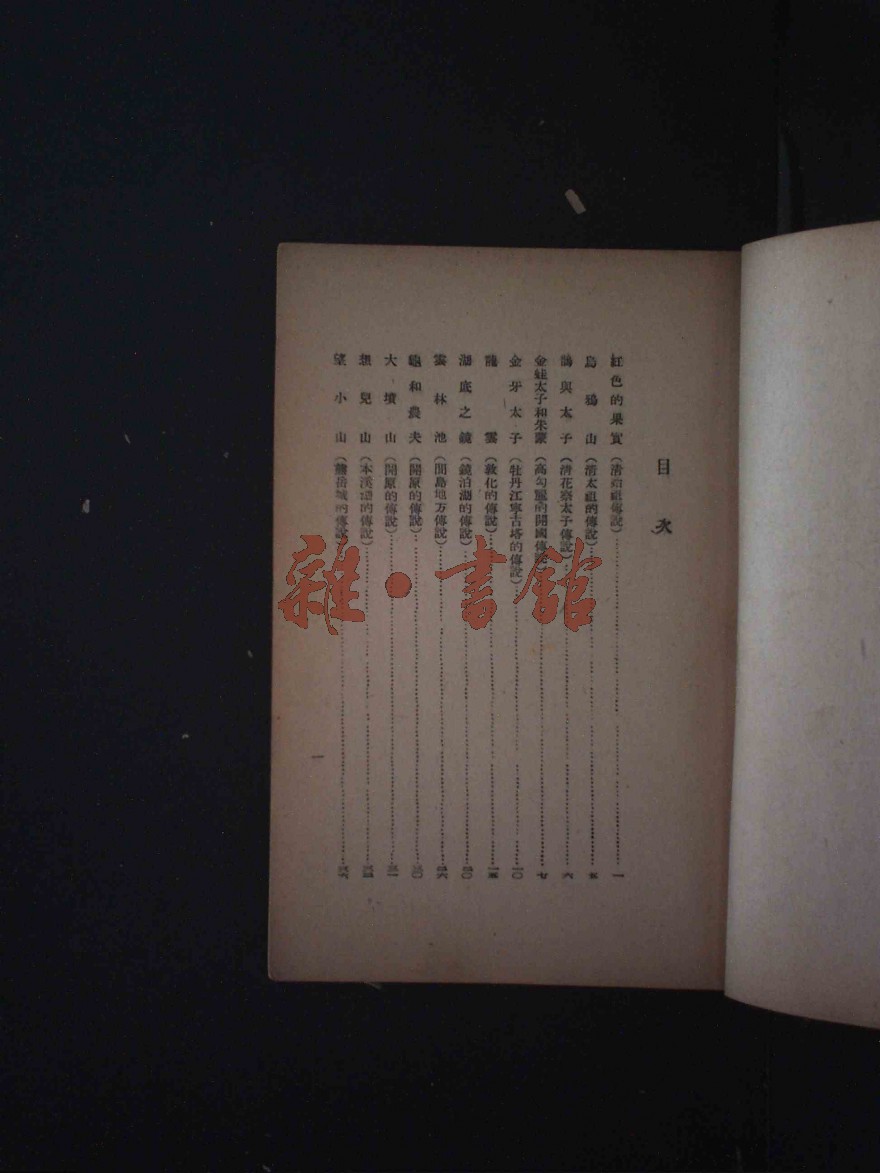 目次
紅色的果實(清始祖傳說)一
烏鴉山(清太祖的傳說)五
鵲與太子(清花寮太子傳說)六
金蛙太子和朱蒙(高勾麗的開國傳說)七
金牙太子(牡丹江寧古塔的傳說)一〇
龍雲(敦化的傳說)一五
湖底之鏡(鏡泊湖的傳說)二〇
雲林池(間島地方傳說)二六
和農夫(開原的傳說)三〇
大墳山(開原的傳說)三一
想兒山(本溪湖的傳說)
望小山(熊岳城的傳說)
一
雜·書館